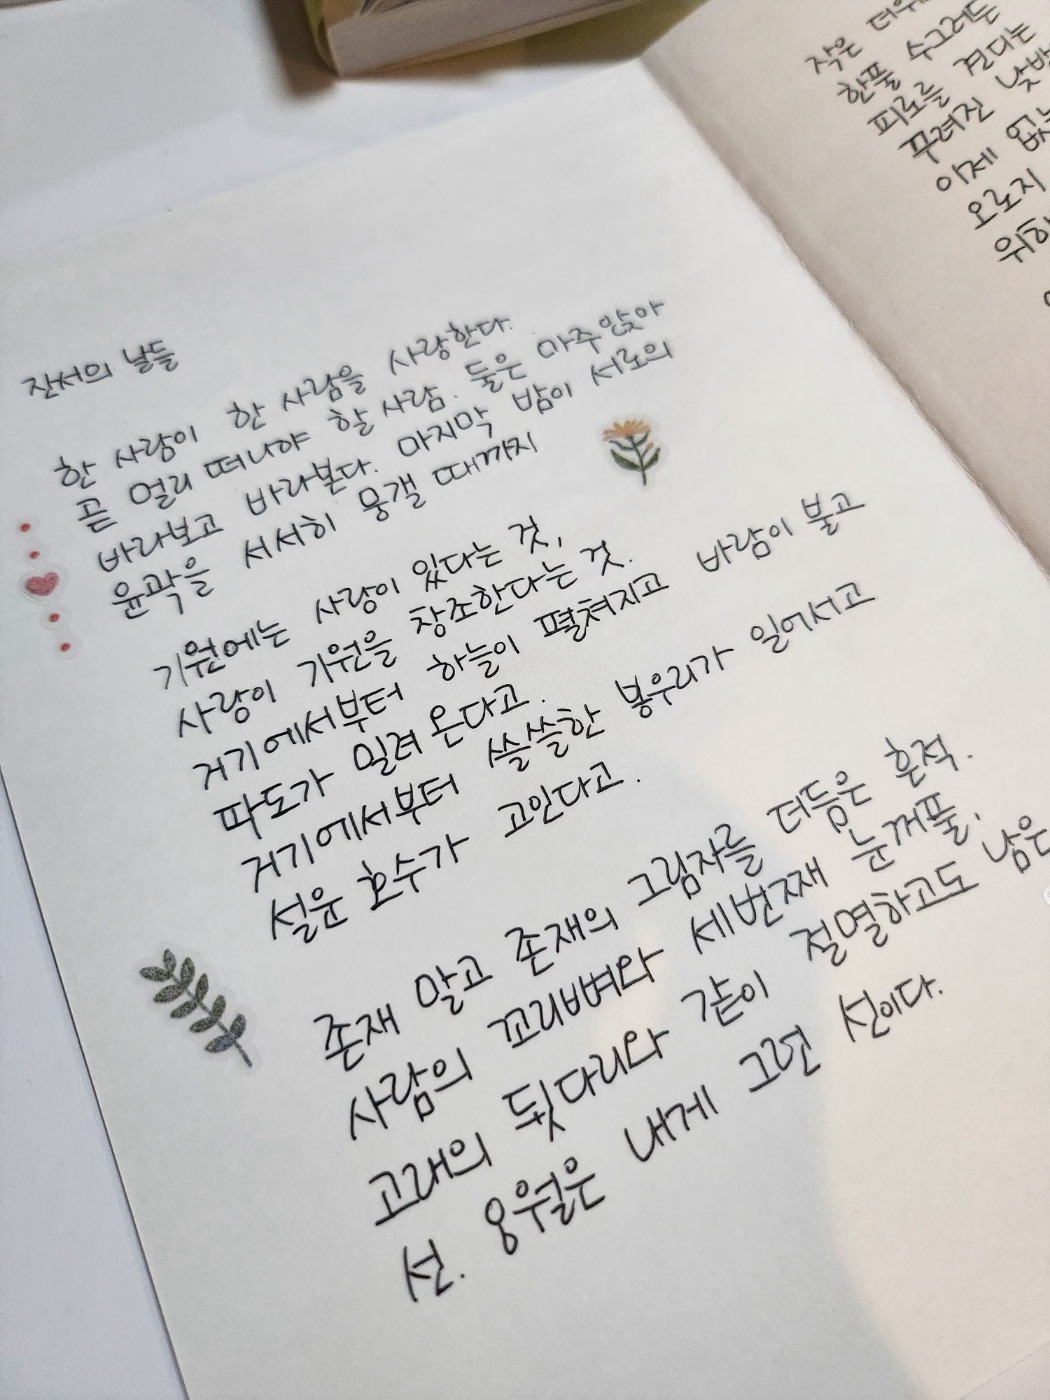 잔서의 날들
한 사람이 한 사람을 사랑한다.
곧 멀리 떠나야 할 사람. 둘은 마주앉아
바라보고 바라본다. 마지막 밤이 서로의
윤곽을 서서히 뭉갤 때까지
기원에는 사랑이 있다는 것,
사랑이 기원을 창조한다는 것.
거기에서부터 하늘이 펼쳐지고 바람이 불고
파도가 밀려 온다고.
거기에서부터 쓸쓸한 봉우리가 일어서고
설운 호수가 고인다고.
존재 말고 존재의 그림자를 더듬은 흔적.
사람의 꼬리뼈와 세번째 눈꺼풀,
고래의 뒷다리와 같이 절멸하고도 남은
선. 웅월은 내게 그런 선이다.
작은
한풀 수그러든
피로를 견디는
무려진
이제
오로지